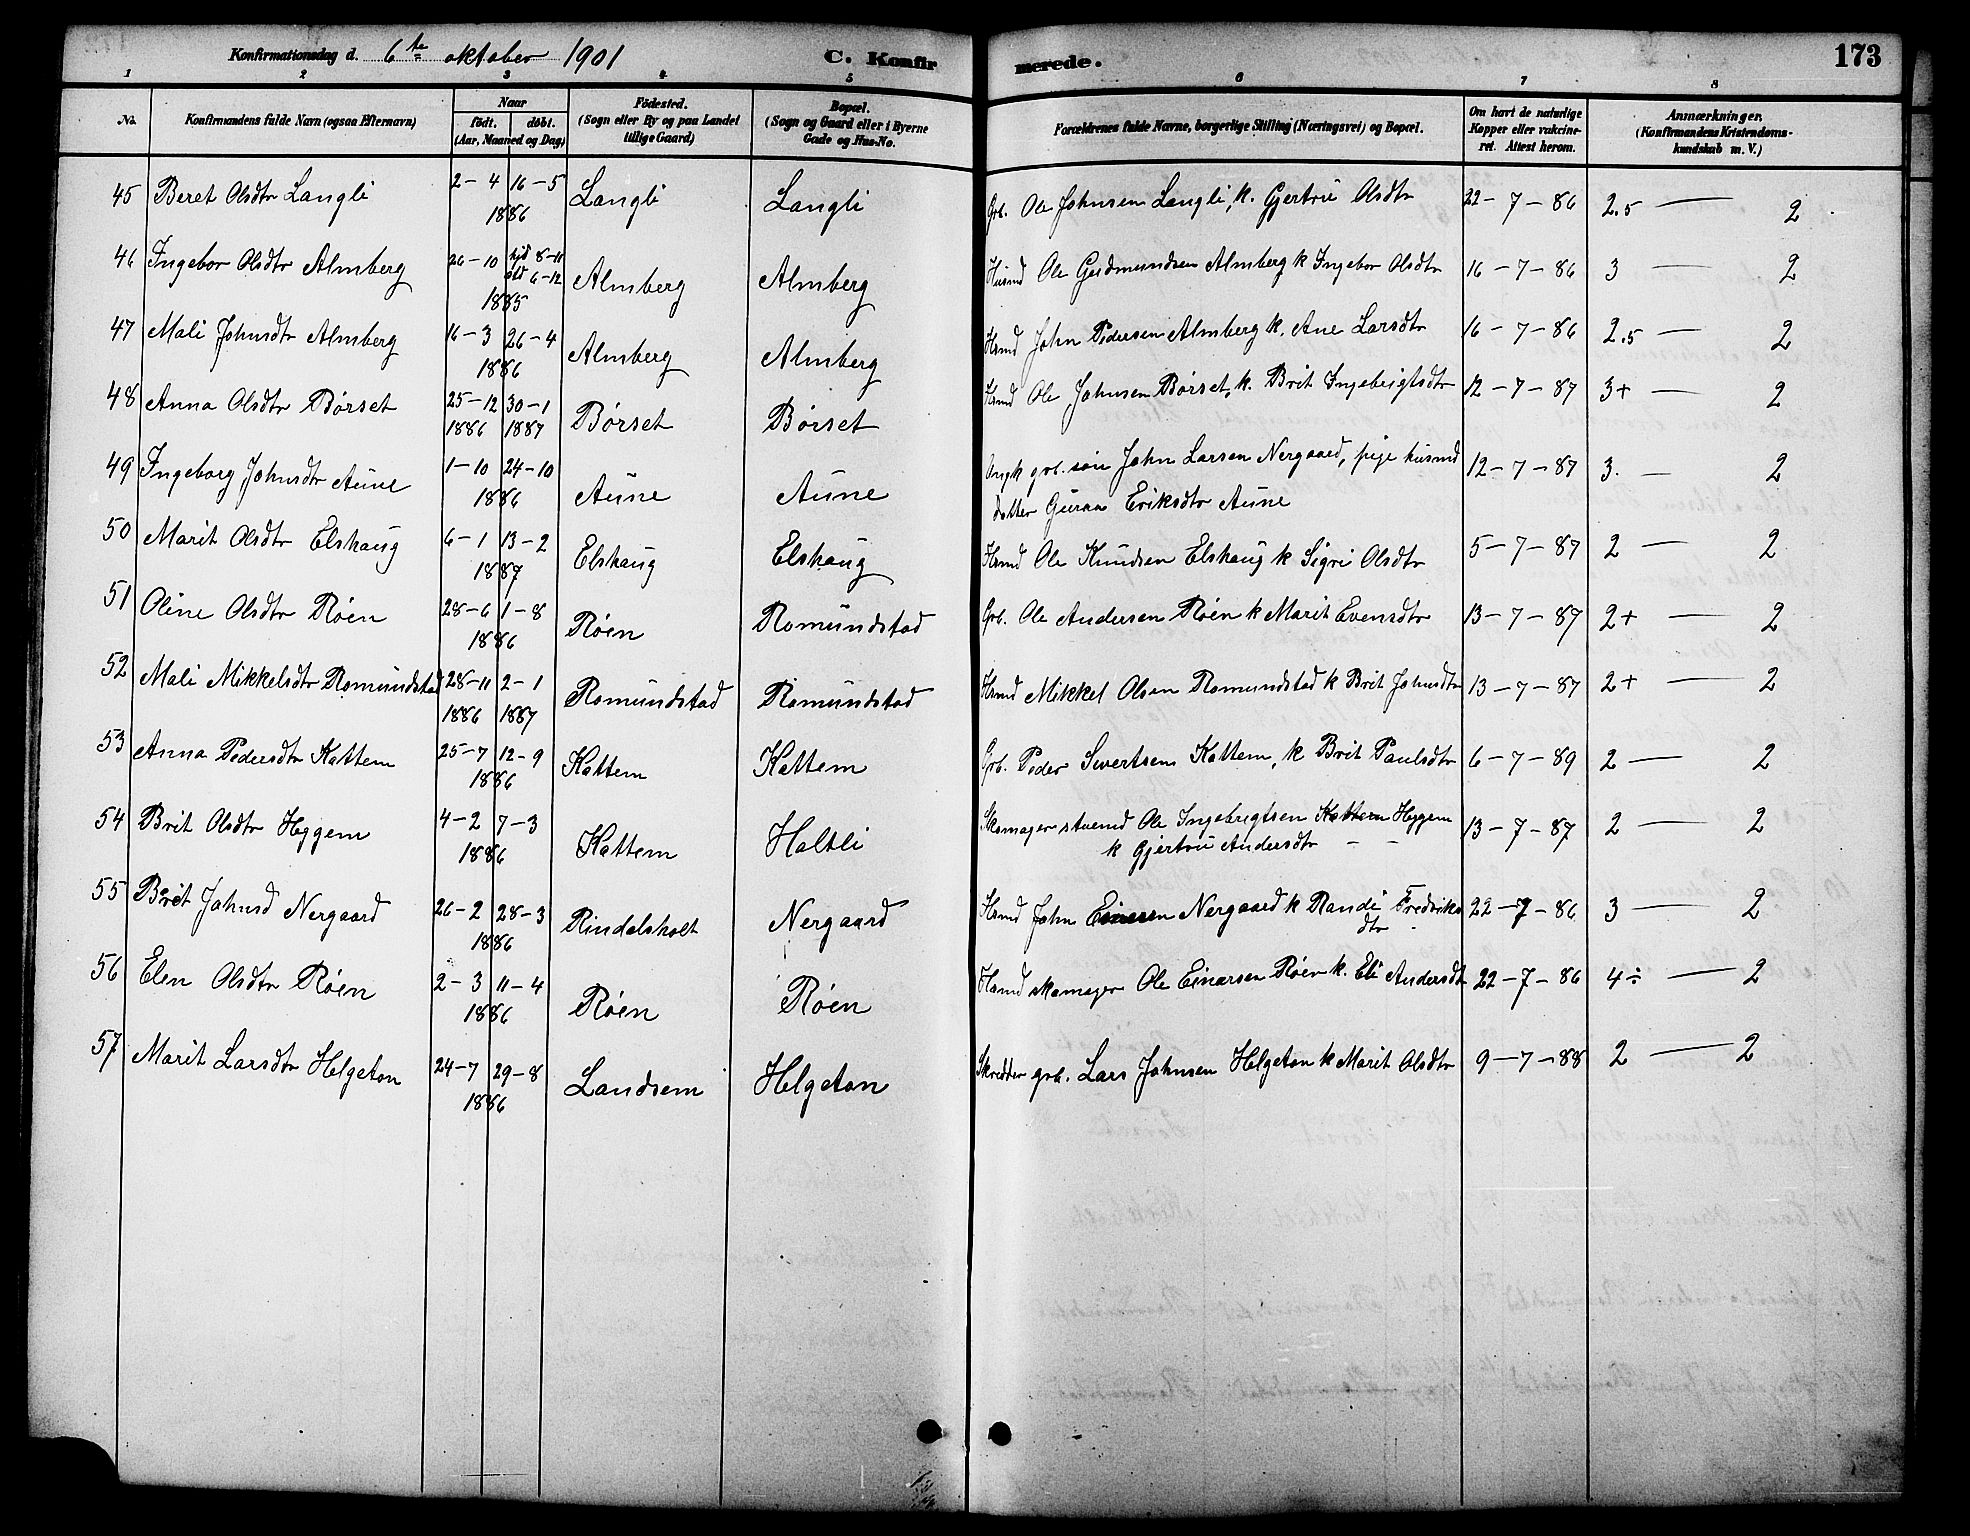 Konfirmationsdag d. 6te oktober 1901 C. Konfirmerede. 173
1 2 3 4 5 6 7 8
No. Konfirmandens fulde Navn (ogsaa Efternavn) Naar födt. döbt. (Aar, Maaned og Dag) Födested. (Sogn eller By og paa Landet tillige Gaard) Bopæl. (Sogn og Gaard eller i Byerne Gade og Hus-No. Forældrenes fulde Navne, borgerlige Stilling (Næringsvei) og Bopæl. Om havt de naturlige Kopper eller vakcineret. Attest herom. Anmærkninger. (Konfirmandens Kristendomskundskab m. V.)
45 Beret Olsdtr Langli 2-4 16-5 1886 Langli Langli Grb. Ole Johnsen Langli, k. Gjertru Olsdtr 22-7-86 2.5 — 2
46 Ingebor Olsdtr Almberg 26-10 hjd 8-11 old 6-12 1885 Almberg Almberg Husmd Ole Gudmundsen Almberg k Ingebor Olsdtr 16-7-86 3 — 2
47 Mali Johnsdtr Almberg 16-3 26-4 1886 Almberg Almberg Hsmd John Pedersen Almberg k. Ane Larsdtr 16-7-86 2.5 — 2
48 Anna Olsdtr Børset 25-12 1886 30-1 1887 Børset Børset Hsmd Ole Johnsen Børset, k. Brit Ingebrigtsdtr 12-7-87 3+ — 2
49 Ingeborg Johnsdtr Aune 1-10 24-10 1886 Aune Aune Ungk grb. søn John Larsen Nergaard, pige husmd 12-7-87 3. — 2
datter Guraa Eriksdtr Aune
50 Marit Olsdtr Elshaug 6-1 13-2 1887 Elshaug Elshaug Hsmd Ole Knudsen Elshaug k Sigri Olsdtr 5-7-87 2 — 2
51 Oline Olsdtr Røen 28-6 1-8 1886 Røen Romundstad Grb. Ole Andersen Røen k Marit Evensdtr 13-7-87 2+ — 2
52 Mali Mikkelsdtr Romundstad 28-11 1886 2-1 1887 Romundstad Romundstad Hsmd Mikkel Olsen Romundstad k Brit Johnsdtr 13-7-87 2+ — 2
53 Anna Pedersdtr Kattem 25-7 12-9 1886 Kattem Kattem Grb. Peder Sivertsen Kattem, k Brit Paulsdtr 6-7-89 2 — 2
54 Brit Olsdtr Heggem 4-2 7-3 1886 Kattem Holtli Skomager stuemd Ole Ingebrigtsen Kattem Heggem 13-7-87 2 — 2
k Gjertru Andersdtr
55 Brit Johnsd Nergaard 26-2 28-3 1886 Rindalsholt Nergaard Hsmd John Einersen Nergaard k Randi Fredriksdtr 22-7-86 3 — 2
56 Elen Olsdtr Røen 2-3 11-4 1886 Røen Røen Hsmd skomager Ole Einarsen Røen k. Eli Andersdt 22-7-86 4÷ — 2
57 Marit Larsdtr Helgeton 24-7 29-8 1886 Landsem Helgeton Skredder grb. Lars Johnsen Helgeton k Marit Olsdtr 9-7-88 2 — 2